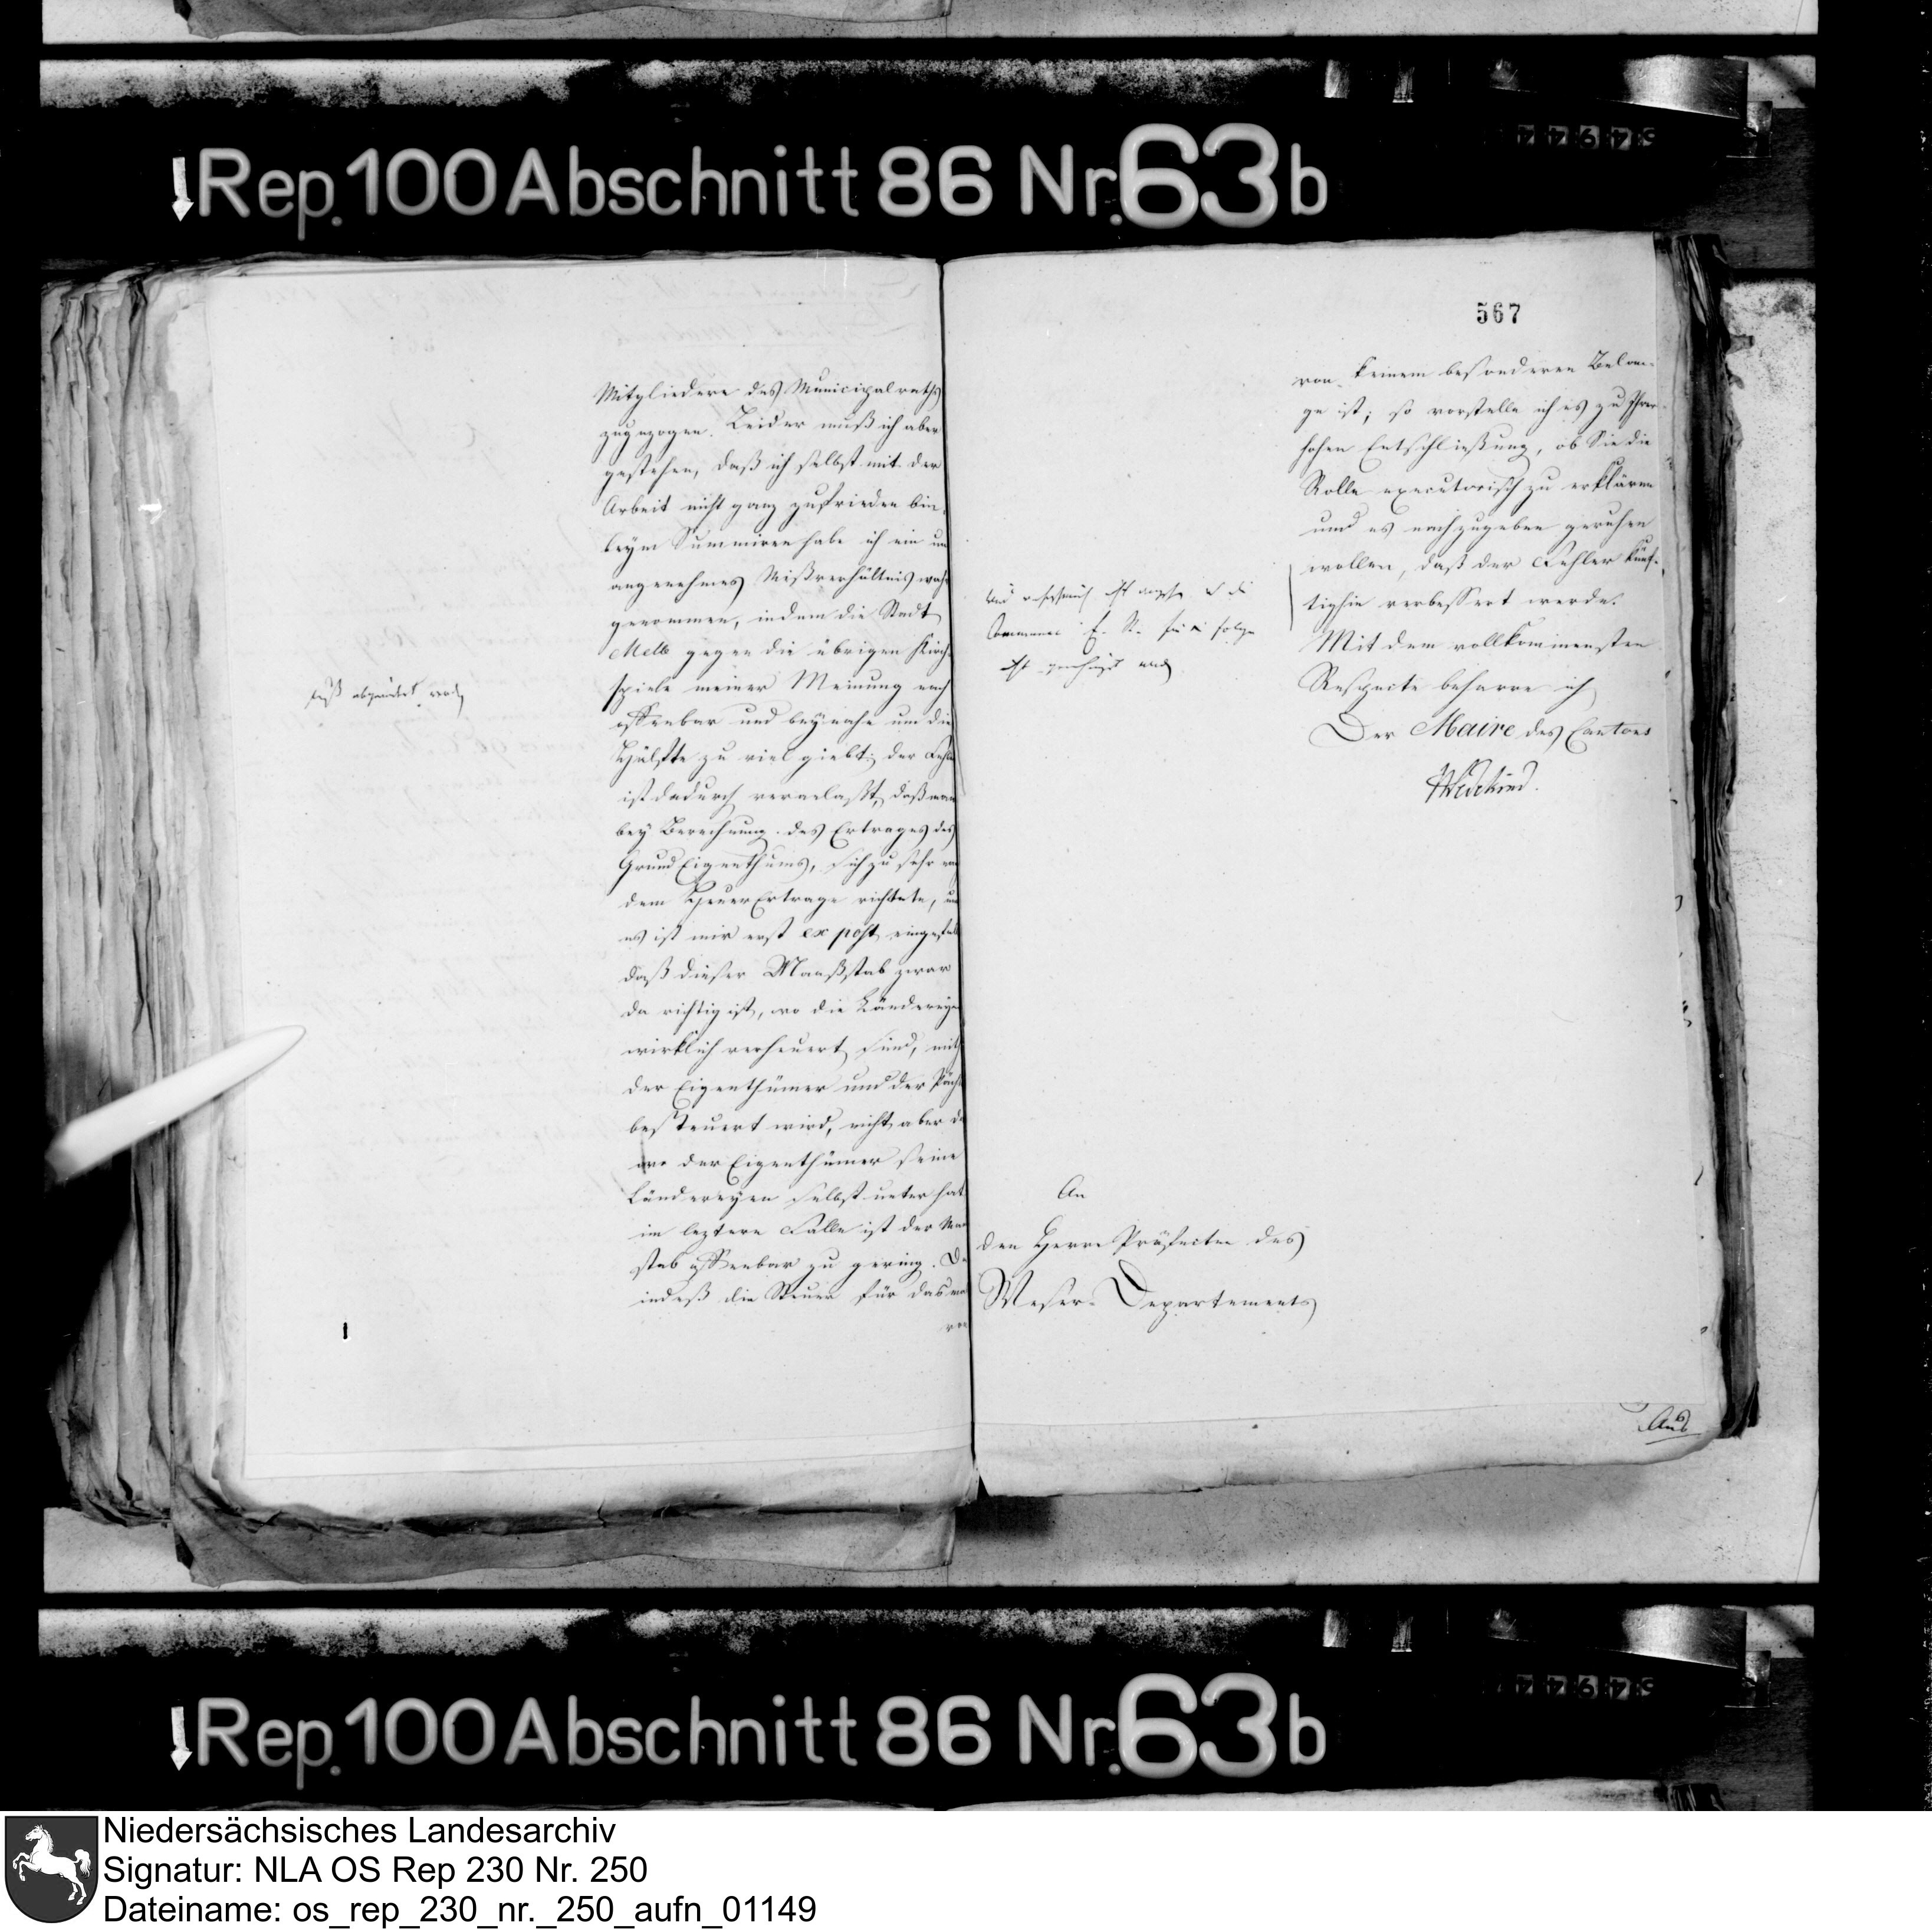 Rep. 100 Abschnitt 86 Nr. 63b
Mitgliedere des Municipalraths
zugezogen. Leider muß ich aber
gestehen, daß ich selbst mit der
Arbeit nicht ganz zufrieden bin,
beym Summiren habe ich ein un
angenehmes Mißverhältnis wahr
genommen, indem die Stadt
Melle gegen die übrigen Kirch
spiele meiner Meinung nach
offenbar und beynahe um die
Hälfte zu viel giebt; der Fehler
ist dadurch veranlaßt, daß man
bey Berechnung des Ertrages des
Grund Eigenthums, sich zu sehr nach
dem Heuer Ertrage richtete, und
es ist mir erst ex post eingefallen
daß dieser Maaßstab zwar
da richtig ist, wo die Ländereyen
wirklich verheuert sind, mith
der Eigenthümer und der Pächt
besteuert wird, nicht aber da
wo der Eigenthümer seine
Ländereyen selbst unter hat
im leztern Falle ist der Maaß
stab offenbar zu gering. Da
indeß die Steuer für das mal
von
567
von keinem besonderen Belan-
ge ist; so vorstelle ich es zu Ihrer
hohen Entschließung, ob Sie die
Rolle executorisch zu erklären
und es nachzugeben geruhen
wollen, daß der Fehler künf-
tighin verbessert werde.
Mit dem vollkommensten
Respecte beharre ich
Der Maire des Cantons
Wedekind.
An
den Herrn Präfecten des
Weser-Departements
Rep. 100 Abschnitt 86 Nr. 63b
Niedersächsisches Landesarchiv
Signatur: NLA OS Rep 230 Nr. 250
Dateiname: os_rep_230_nr._250_aufn_01149